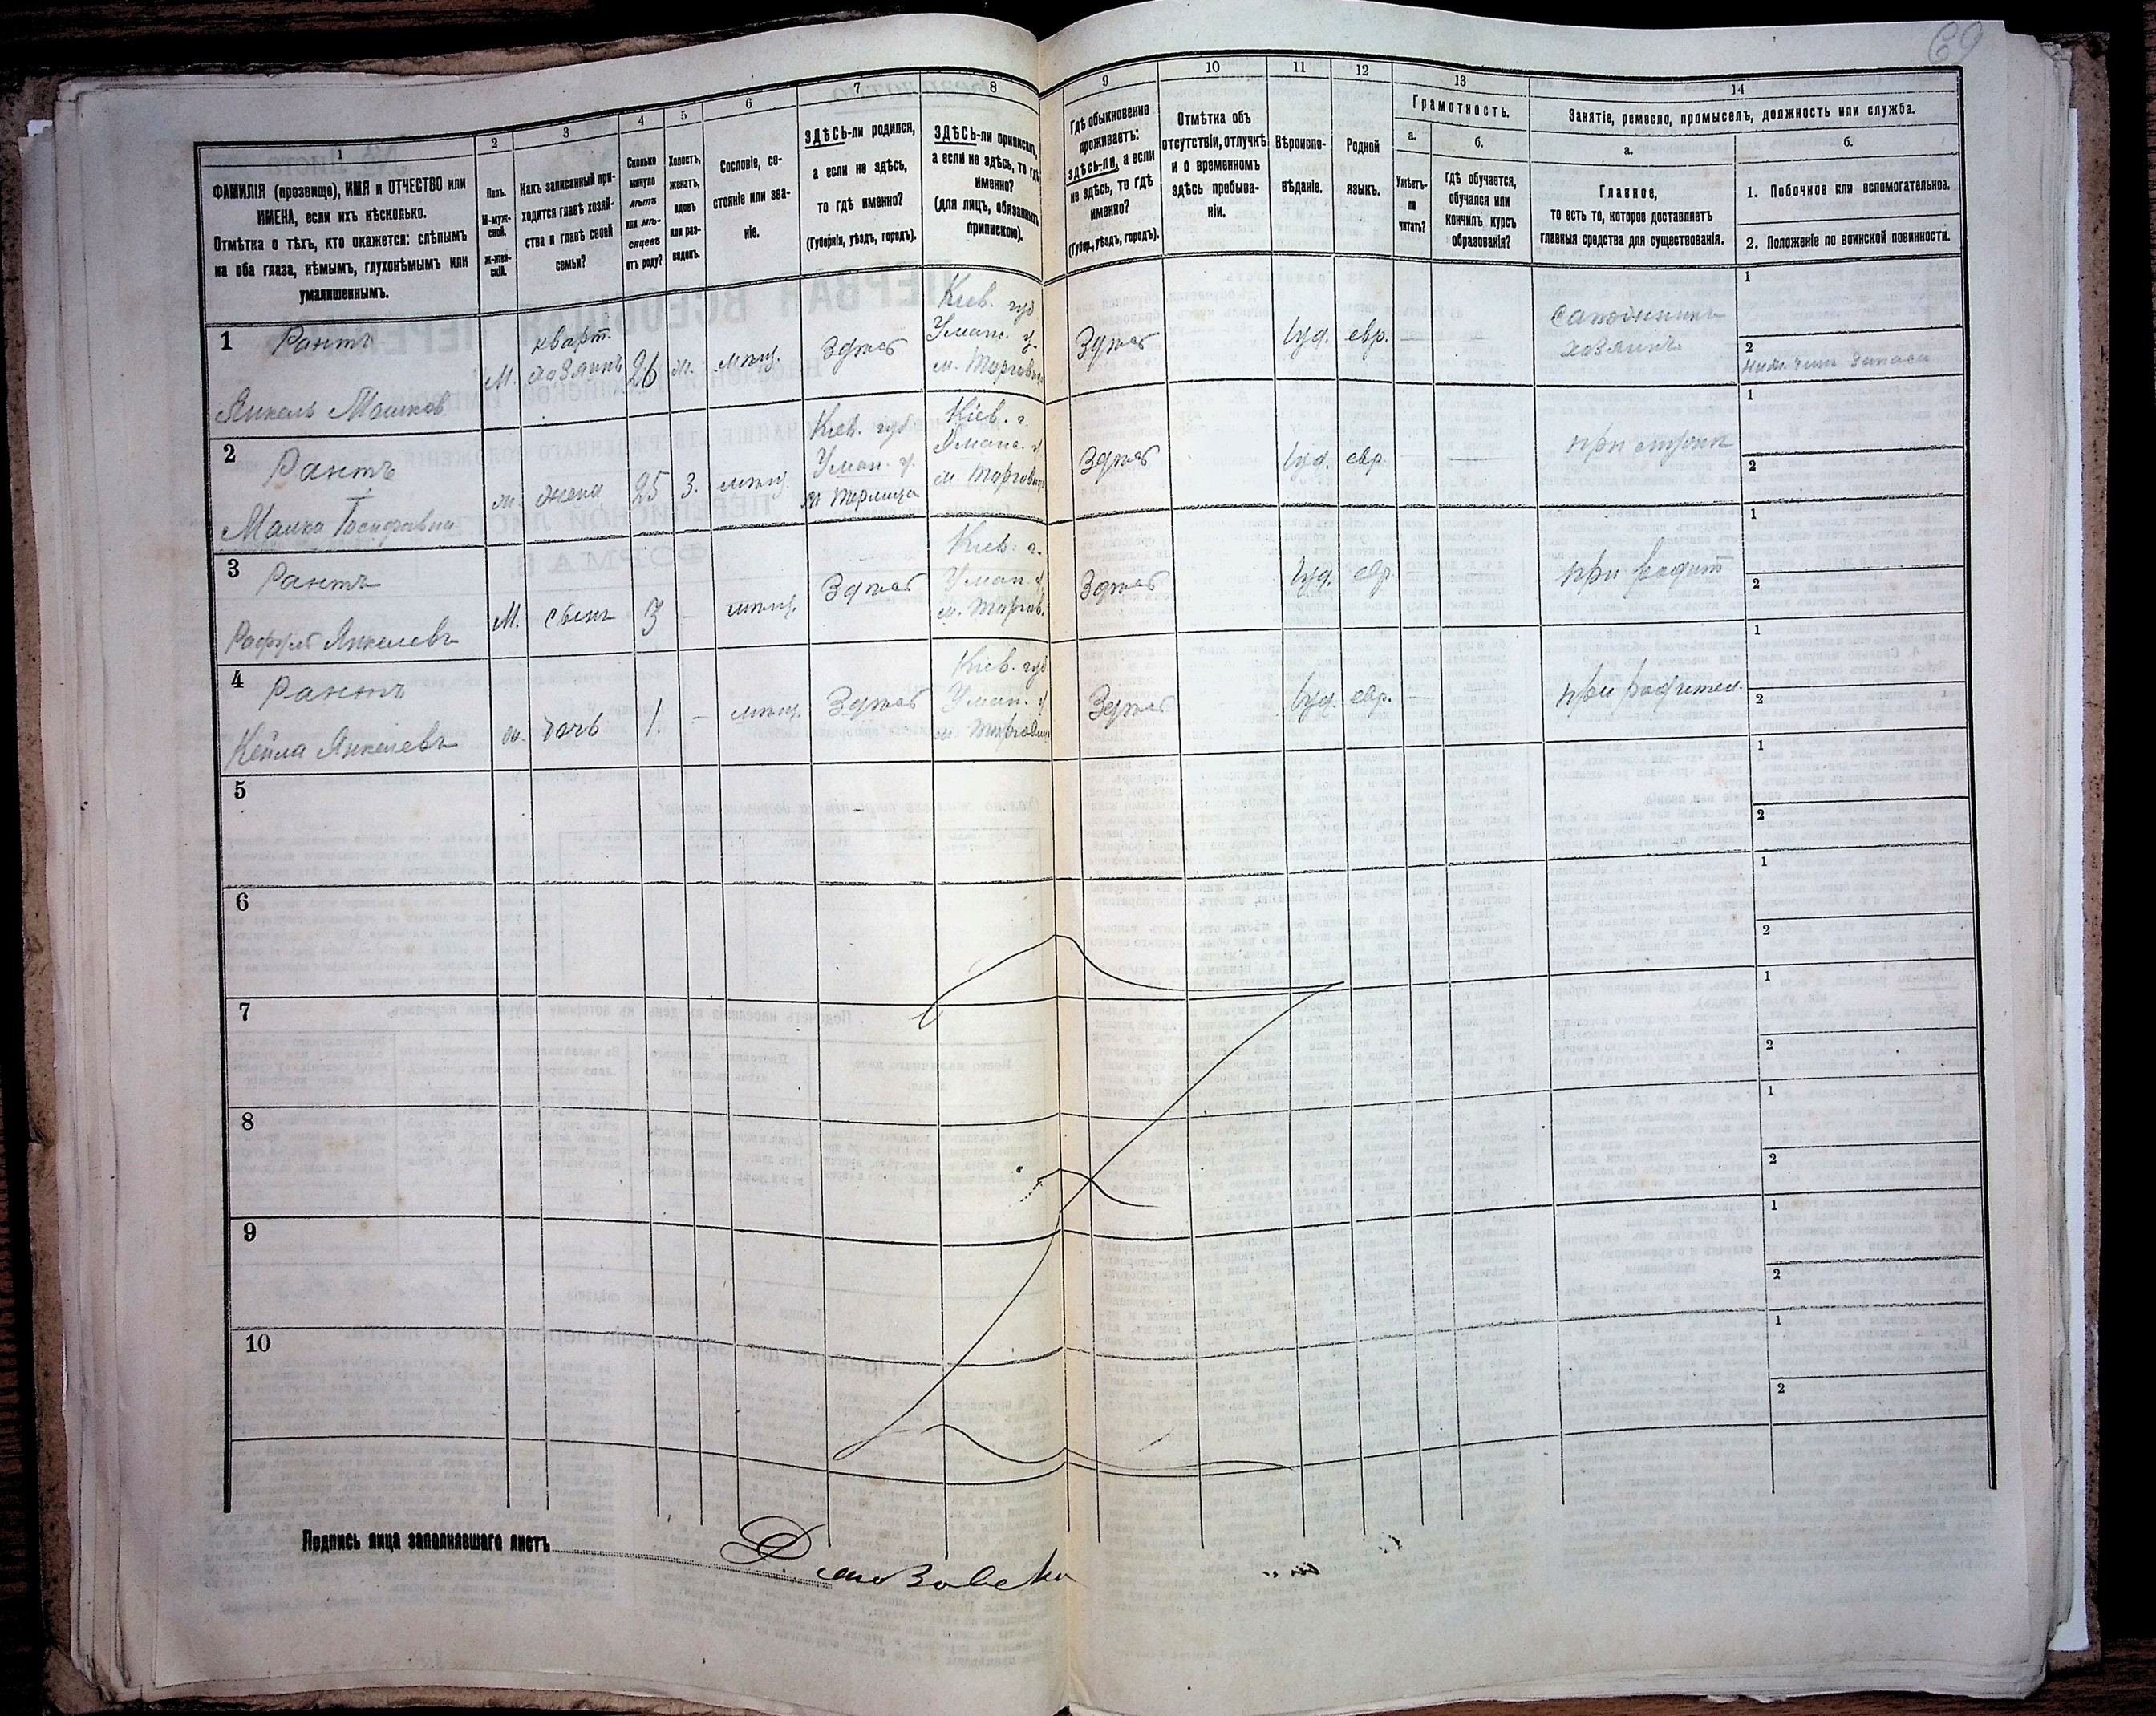 69
1
2
3
4
5
6
7
8
9
10
11
12
13
14
ФАМИЛІЯ (прозвище), ИМЯ и ОТЧЕСТВО или
ИМЕНА, если ихъ нѣсколько.
Отмѣтка о тѣхъ, кто окажется: слѣпымъ
на оба глаза, нѣмымъ, глухонѣмымъ или
умалишеннымъ.
Полъ.
М-муж-
ской.
Ж-жен-
скій.
Какъ записанный при-
ходится главѣ хозяй-
ства и главѣ своей
семьи?
Сколько
минуло
лѣтъ
или мѣ-
сяцевъ
отъ роду?
Холостъ,
женатъ,
вдовъ
или раз-
веденъ.
Сословіе, со-
стояніе или зва-
ніе.
ЗДѢСЬ-ли родился,
а если не здѣсь,
то гдѣ именно?
(Губернія, уѣздъ, городъ).
ЗДѢСЬ-ли приписанъ,
а если не здѣсь, то гдѣ
именно?
(для лицъ, обязанныхъ
припискою).
Гдѣ обыкновенно
проживаетъ:
здѣсь-ли, а если
не здѣсь, то гдѣ
именно?
(Губер., уѣздъ, городъ).
Отмѣтка объ
отсутствіи, отлучкѣ
и о временномъ
здѣсь пребыва-
ніи.
Вѣроиспо-
вѣданіе.
Родной
языкъ.
Грамотность.
а.
б.
Умѣетъ-
ли
читать?
гдѣ обучается,
обучался или
кончилъ курсъ
образованія?
Занятіе, ремесло, промыселъ, должность или служба.
а.
б.
Главное,
то есть то, которое доставляетъ
главныя средства для существованія.
1. Побочное или вспомогательное.
2. Положеніе по воинской повинности.
1 Рантъ
Янкель Мошков
М. кварт. хозяинъ 26 ж. мѣщ. Здѣсь
Кіев. губ.
Уманс. у.
м. Торговица
Здѣсь Іуд. евр. —
сапожникъ
хозяинъ
1
2
2 Рантъ
Малка Іосифовна
ж. жена 25 з. мѣщ.
Кіев. губ.
Уман. у.
Кіев. г.
Уманс. у.
м. Торговица
Здѣсь Іуд. евр. —
при мужѣ
1
2
3 Рантъ
Янкелевъ
М. сынъ 3 - мѣщ. Здѣсь
Кіев. г.
Уман. у.
м. Торгов.
Здѣсь Іуд. евр.
при родит
1
2
4 Рантъ
Кейла Янкелевъ
ж. дочь 1. - мѣщ. Здѣсь
Кіев. губ.
Уман. у.
м. Торговица
Здѣсь Іуд. евр. —
при родител.
1
2
5
1
2
6
1
2
7
1
2
8
1
2
9
1
2
10
1
2
Подпись лица заполнявшаго листъ